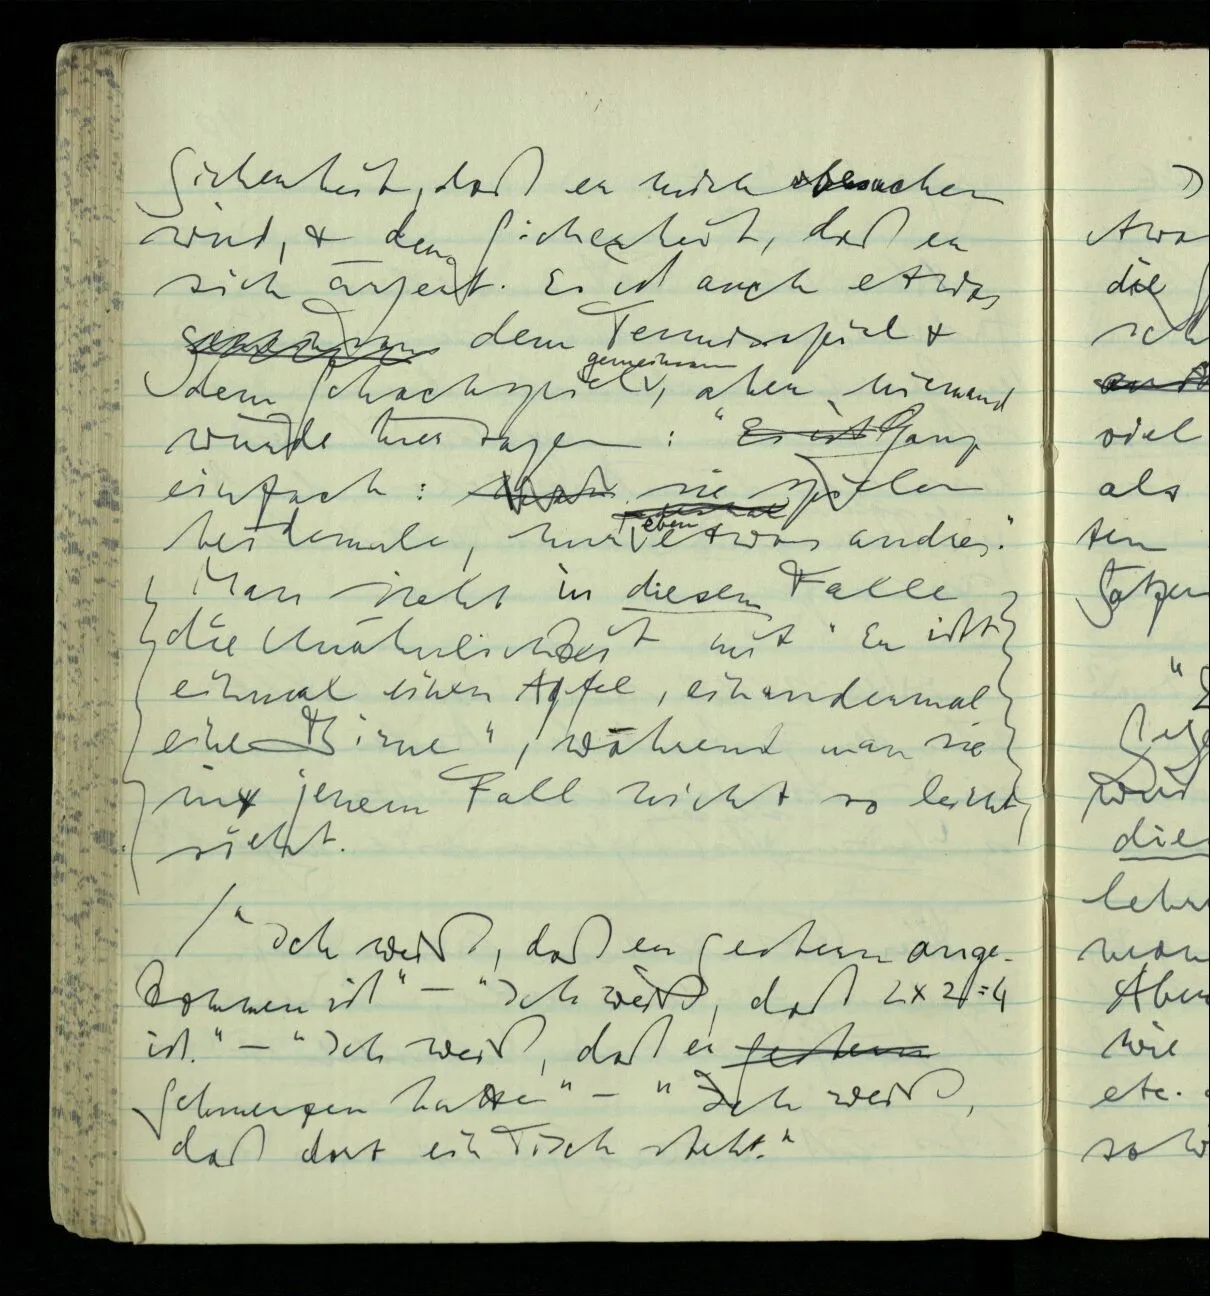 Sicherheit, daß er mich besuchen
wird, & der Sicherheit, daß er
sich ärgert. Es ist auch etwas
dem Tennisspiel &
gemeinsam
dem Schachspiel, aber niemand
würde hier sagen: "Es ist Ganz
einfach: sie spielen
eben
beidemale, nur etwas andres."
Man sieht in diesem Falle
die Unähnlichkeit mit "Er isst
einmal einen Apfel, einandermal
eine Birne", während man sie
in jenem Fall nicht so leicht
sieht.
/"Ich weiß, daß er gestern ange-
kommen ist" – "Ich weiß, daß 2x2=4
ist." – "Ich weiß, daß er gestern
Schmerzen hatte" – "Ich weiß,
daß dort ein Tisch steht."
etwa
die
sich
viel
als
ten
Sätzen
wird
die
wie
etc.